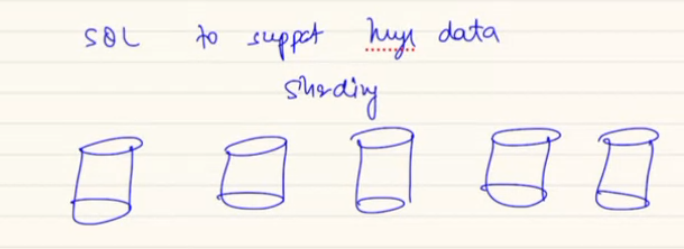 SQL to suppot huge data
Sharding